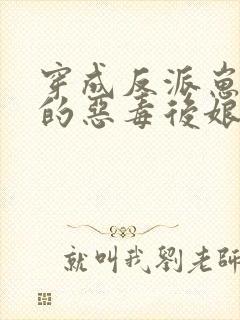 穿成反派崽
的惡毒後娘
就叫我劉老師